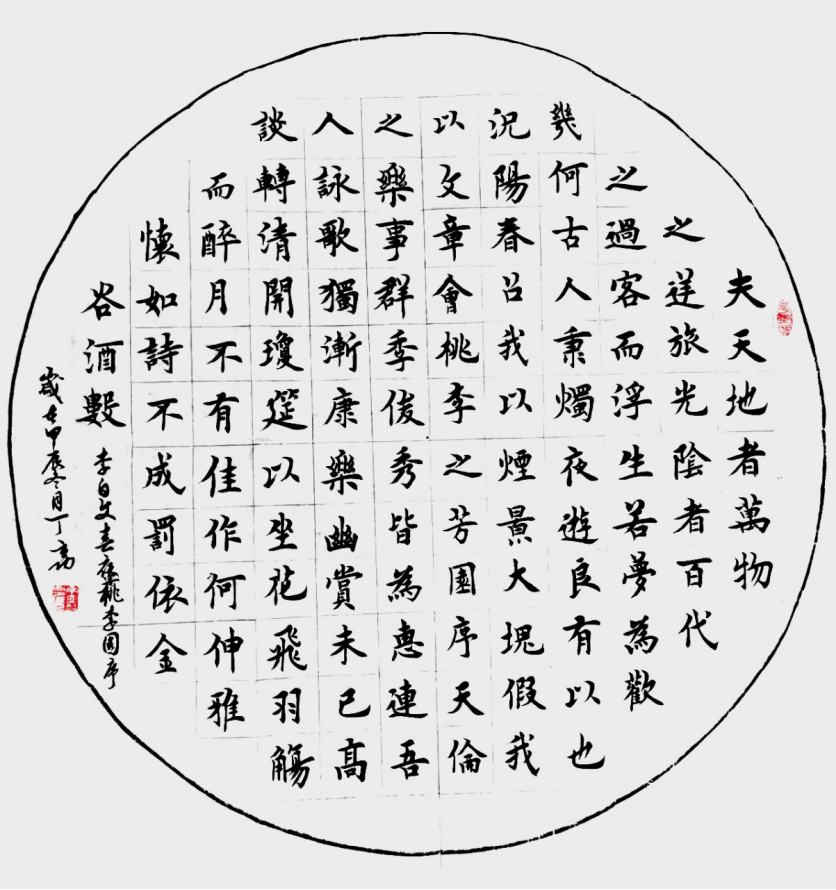 夫天地者萬物
之逆旅光陰者百代
之過客而浮生若夢為歡
幾何古人秉燭夜遊良有以也
況陽春召我以煙景大塊假我
以文章會桃李之芳園序天倫
之樂事群季俊秀皆為惠連吾
人詠歌獨漸康樂幽賞未已高
談轉清開瓊筵以坐花飛羽觴
而醉月不有佳作何伸雅
懷如詩不成罰依金
谷酒數
李白文春夜桃李園序
歲在甲辰冬月丁